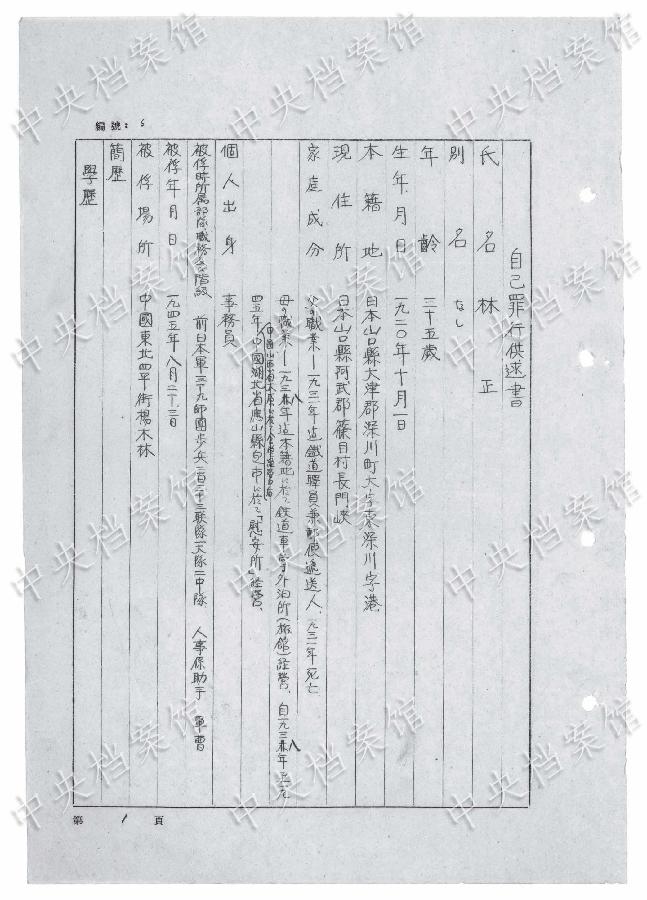 編號: 6
自己罪行供述書
氏名 林 正
別名 なし
年齡 三十五歲
生年月日 一九二〇年十月一日
本籍地 日本山口縣大津郡深川町大字東深川字港
現住所 日本山口縣阿武郡篠目村長門峽
家庭成分 父の職業―一九三一年迄鐵道職員兼郵便遞送人、一九三一年死亡
母の職業―一九三八年迄本籍地に於て鉄道車掌外泊所(旅館)経営、自一九三八年至一九
四五年、中國湖北省應山縣に於て「慰安所」経営、
個人出身 事務員
被俘時所屬部隊職務及階級 前日本軍三十九師團步兵二百三十三聯隊一大隊二中隊 人事係助手 軍曹
被俘年月日 一九四五年八月二十三日
被俘場所 中國東北四平街楊木林
簡歷
學歷
第 1 頁
中央档案馆